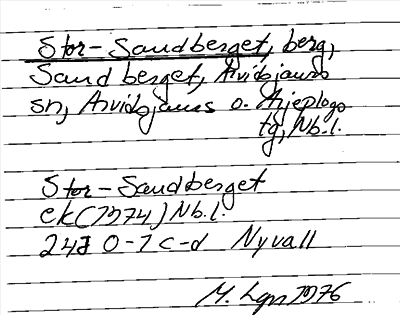 Stor-Sandberget, berg,
Sandberget, Arvidsjaurs
sn, Arvidsjaurs o. Arjeplogs
tg, Nb.l.
Stor-Sandberget
ek (1974) Nb.l.
24J 0-1 c-d Nyvall
M. Lgn 1976